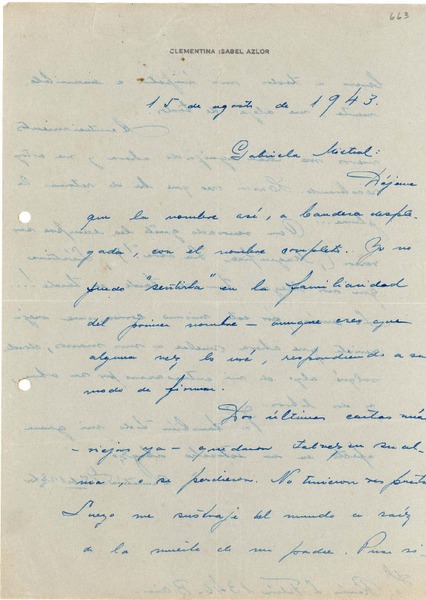 663
CLEMENTINA ISABEL AZLOR
15 de agosto de 1943.
Gabriela Mistral:
Déjeme
que la nombre así, a bandera desple-
gada, con el nombre completo. Yo no
puedo "sentirla" en la familiaridad
del primer nombre - aunque creo que
alguna vez lo usé, respondiendo a su
modo de firmar.
Dos últimas cartas mías
- viejas ya - quedaron tal vez en su al-
ma, o se perdieron. No tuvieron respuesta
Luego me sustraje del mundo a raíz
de la muerte de mi padre. Puse si-